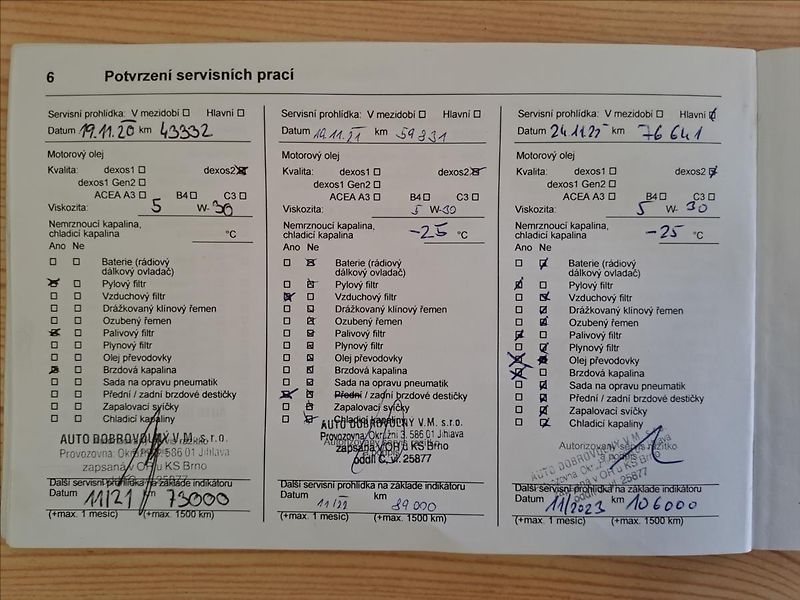 6 Potvrzení servisních prací
Servisní prohlídka: V mezidobí Hlavní
Datum 19.11.20 km 43332
Motorový olej
Kvalita: dexos1 dexos2
dexos1 Gen2
ACEA A3 B4 C3
Viskozita: 5 W- 30
Nemrznoucí kapalina,
chladicí kapalina °C
Ano Ne
Baterie (rádiový
dálkový ovladač)
Pylový filtr
Vzduchový filtr
Drážkovaný klínový řemen
Ozubený řemen
Palivový filtr
Plynový filtr
Olej převodovky
Brzdová kapalina
Sada na opravu pneumatik
Přední / zadní brzdové destičky
Zapalovací svíčky
Chladicí kapaliny
AUTO DOBROVOLNÝ V.M. s.r.o.
Provozovna: Okružní 3, 586 01 Jihlava
zapsaná v OR u KS Brno
25877
Další servisní prohlídka na základe indikátoru
Datum 11/21 km 73000
(+max. 1 měsíc) (+max. 1500 km)
Servisní prohlídka: V mezidobí Hlavní
Datum 19.11.21 km 59331
Motorový olej
Kvalita: dexos1 dexos2
dexos1 Gen2
ACEA A3 B4 C3
Viskozita: 5 W-30
Nemrznoucí kapalina,
chladicí kapalina -25 °C
Ano Ne
Baterie (rádiový
dálkový ovladač)
Pylový filtr
Vzduchový filtr
Drážkovaný klínový řemen
Ozubený řemen
Palivový filtr
Plynový filtr
Olej převodovky
Brzdová kapalina
Sada na opravu pneumatik
Přední / zadní brzdové destičky
Zapalovací svíčky
Chladicí kapaliny
AUTO DOBROVOLNÝ V.M. s.r.o.
Provozovna: Okružní 3, 586 01 Jihlava
zapsaná v OR u KS Brno
oddíl C, vl. 25877
Další servisní prohlídka na základe indikátoru
Datum 11/22 km 89000
(+max. 1 měsíc) (+max. 1500 km)
Servisní prohlídka: V mezidobí Hlavní
Datum 24.11.22 km 76641
Motorový olej
Kvalita: dexos1 dexos2
dexos1 Gen2
ACEA A3 B4 C3
Viskozita: 5 W- 30
Nemrznoucí kapalina,
chladicí kapalina -25 °C
Ano Ne
Baterie (rádiový
dálkový ovladač)
Pylový filtr
Vzduchový filtr
Drážkovaný klínový řemen
Ozubený řemen
Palivový filtr
Plynový filtr
Olej převodovky
Brzdová kapalina
Sada na opravu pneumatik
Přední / zadní brzdové destičky
Zapalovací svíčky
Chladicí kapaliny
Autorizovaný servis razítko
AUTO DOBROVOLNÝ V.M.
Provozovna: Okružní 3, 586 01 Jihlava
zapsaná v OR u KS Brno
25877
Další servisní prohlídka na základe indikátoru
Datum 11/2023 km 106000
(+max. 1 měsíc) (+max. 1500 km)